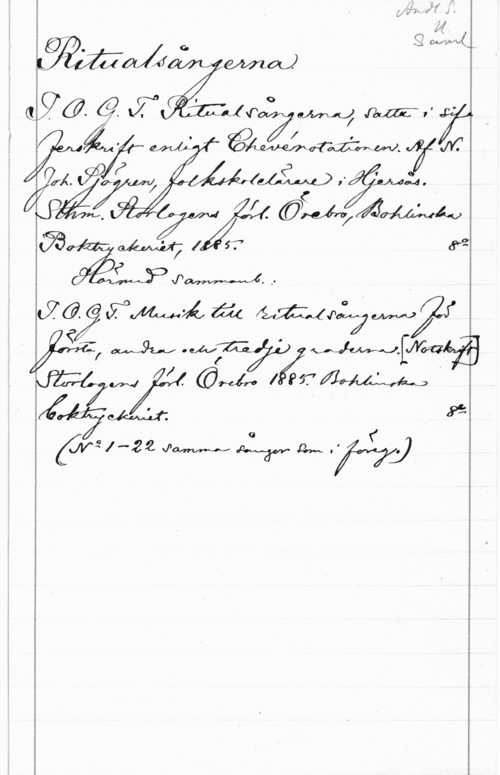 Andl. S.
U
Saml
Ritualsångerna.
I. O. G. T. Ritualsångerna, satta i sif-
ferskrift enligt Chevénotationen. Af N.
Joh. Sjögren, folkskolelärare i Hjersås.
Sthm. Storlogens förl. Örebro, Bohlinska
Boktryckeriet, 1885. 8º
Härmed sammanb.:
I. O. G. T. Musik till ritualsångerna för
första, andra och tredje graderna. [Notskrift]
Storlogens förl. Örebro 1885. Bohlinska
boktryckeriet. 8º
(Nº 1-22 samma sånger som i föreg.)